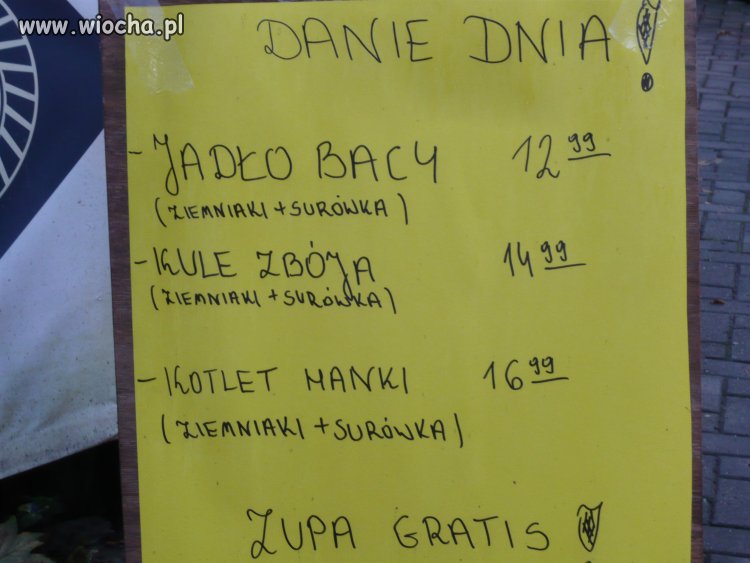 www.wiocha.pl
DANIE DNIA!
- JADŁO BACY 12 99
(ZIEMNIAKI + SURÓWKA)
- KULE ZBÓJA 14 99
(ZIEMNIAKI + SURÓWKA)
- KOTLET HANKI 16 99
(ZIEMNIAKI + SURÓWKA)
ZUPA GRATIS!